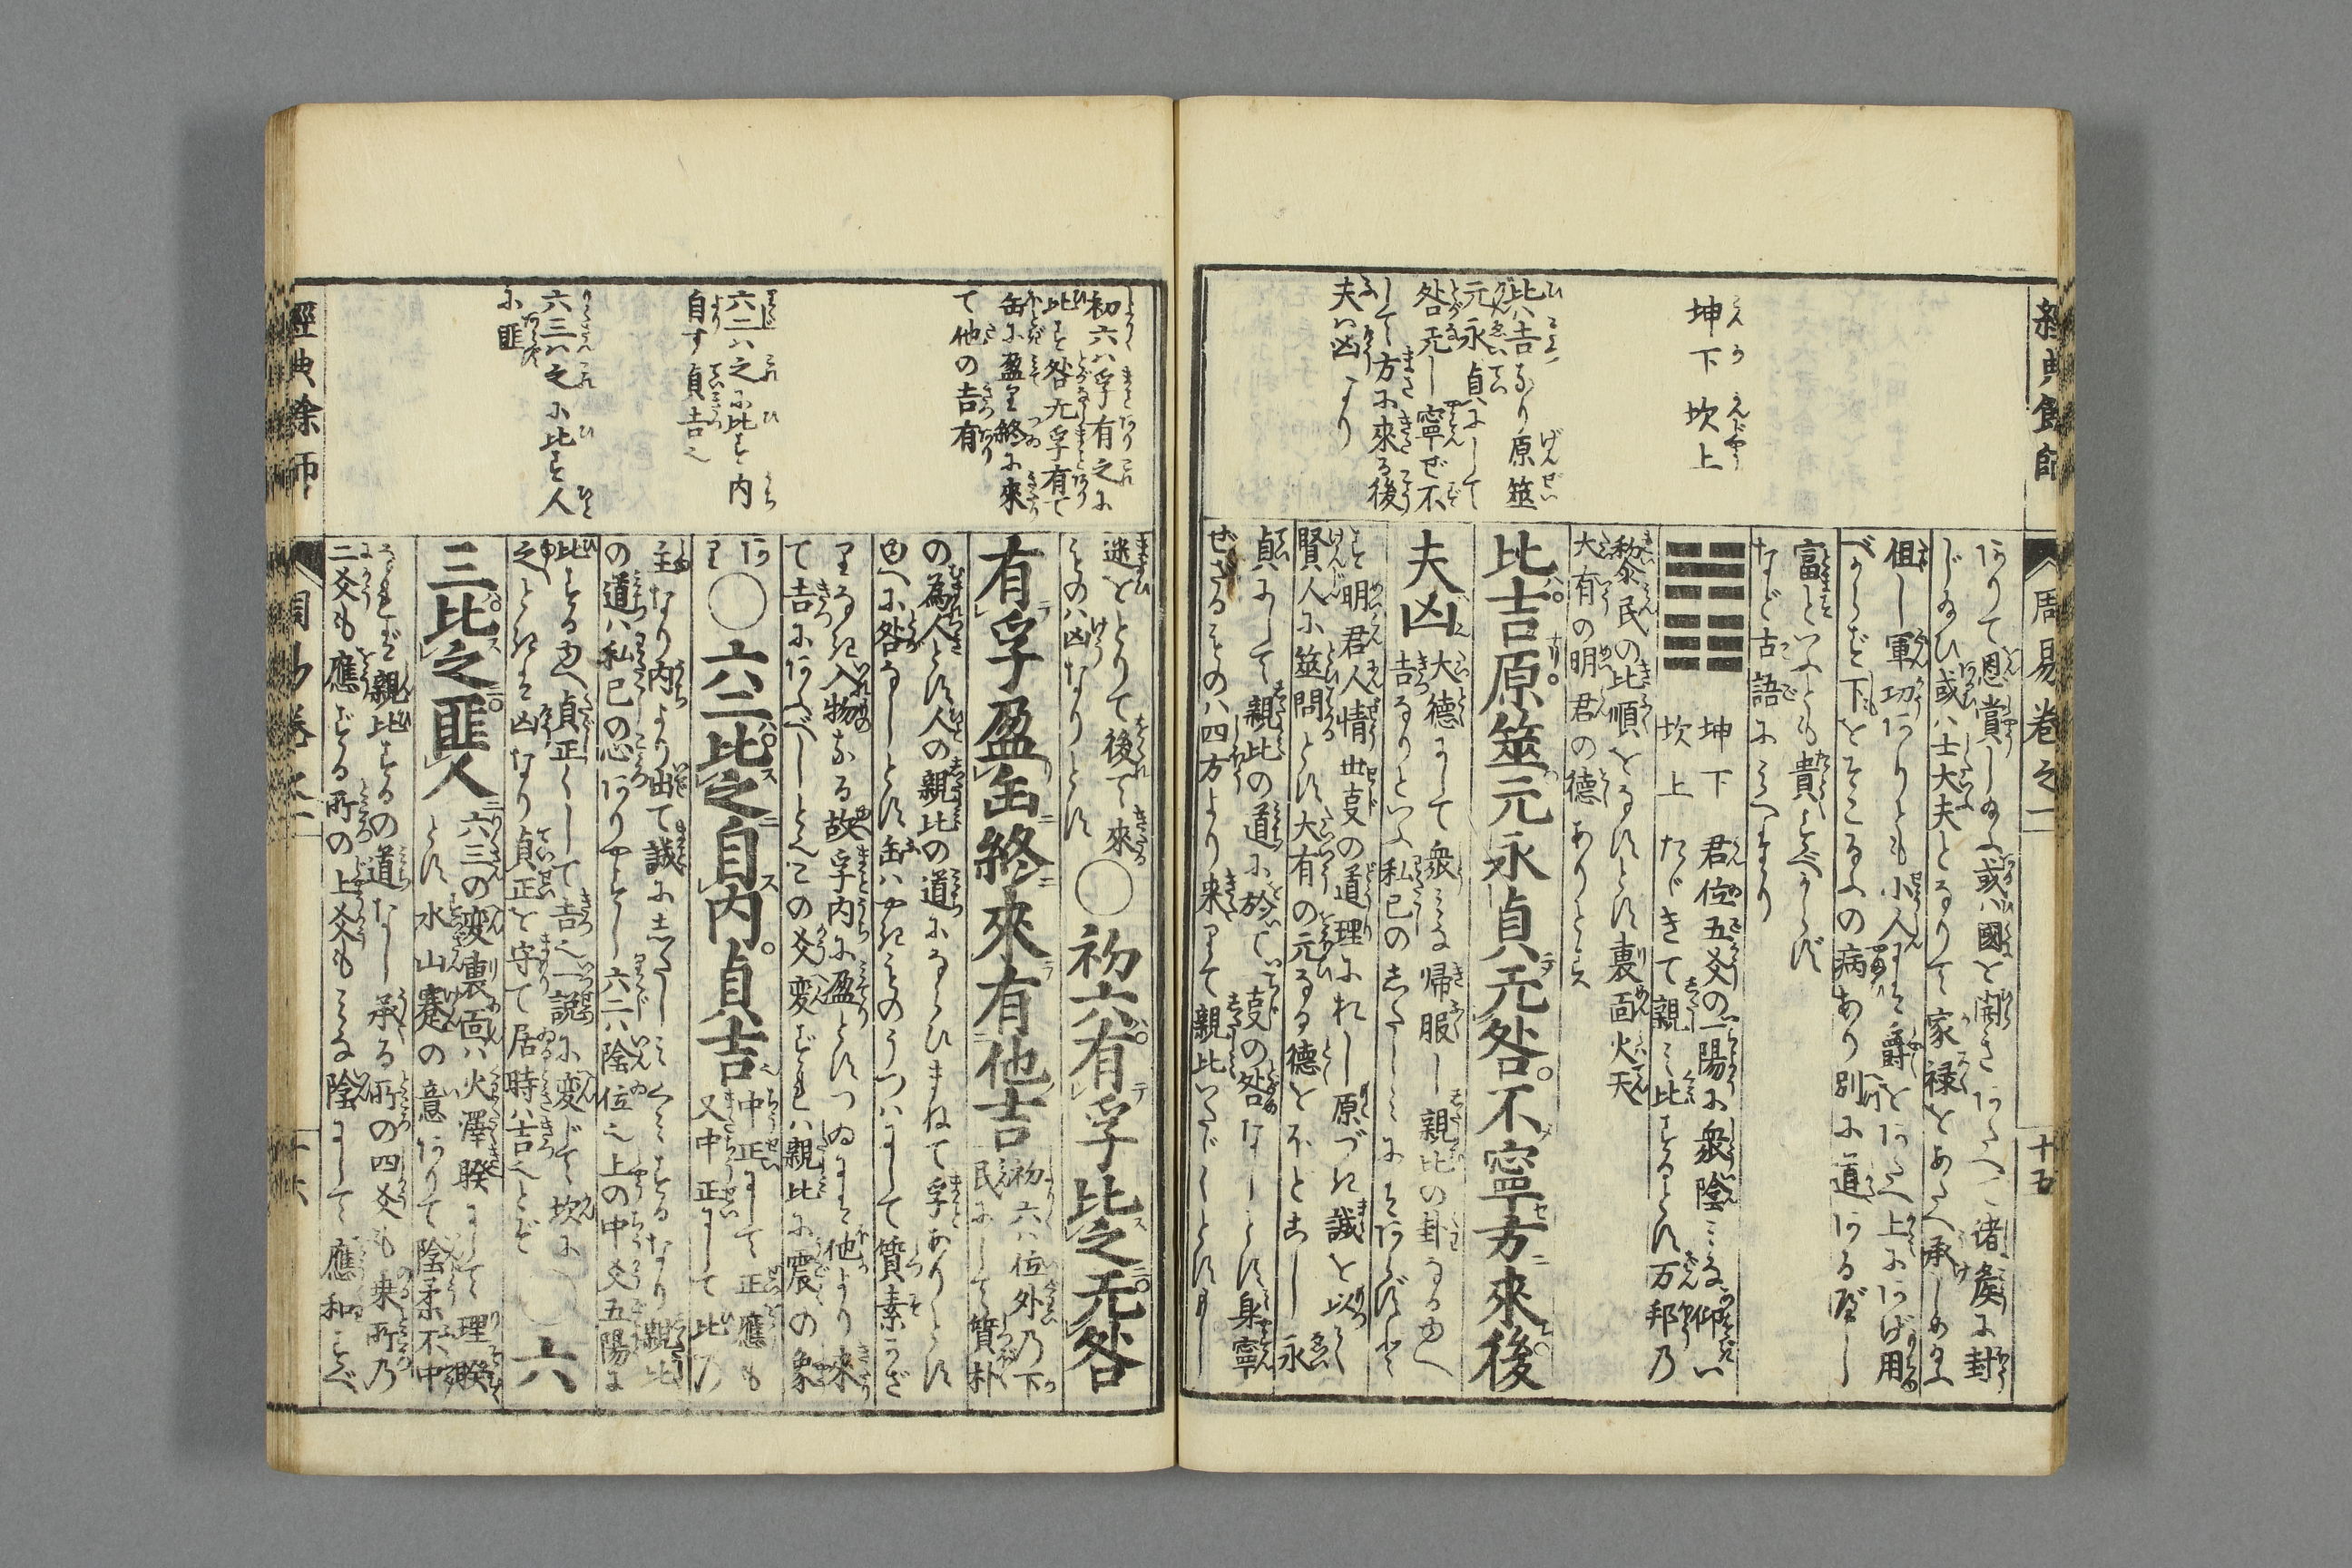 經典餘師
周易卷之一
十五
坤下坎上
比八吉なり原筮
元永貞にして
咎无し寧ぜ不
して方に來る後
夫ハ凶なり
ありて恩賞し給ふ或ハ國を開き あたへて諸矦に封
じ給ひ或ハ士大夫となりて家禄をあたへ承しめ給ふ
但し軍功ありとも小人にハ爵を あたへ上にあげ用
べからず下をそこなふの病あり別に道ある歴し
富といふとも貴ぶべからず
など古語にみへたり
坤下 君位五爻の一陽に衆陰みな仰い
坎上 たゞきて親み比するとす万邦乃
黎民の比順をなすとす裏面火天
大有の明君の德ありとス
比吉原筮元永貞无咎不寧方來後
夫凶
大德にして衆みな帰服し親比の卦なる由へ
吉なりといふ私已のしたしみにハあらず
明君人情世支の道理にれし原づき誠を以し
賢人に筮問とす大有の元なる德をほどこし永
貞にして親比の道に於ていちじ支の咎なしとす身寧
ぜざるものハ四方より来りて親比いたゞくとすもし
初六ハ孚有之に
比す咎无孚有て
缶に盈り終に來
て他の吉有
六二ハ之に比す内
自す貞吉之
六三ハ之に比す人
に匪
迷をとりて後て來
ものハ凶なりとす
○初六有孚比之无咎
有孚盈缶終來有他吉
初六ハ位外乃下
民にして質朴
の為人とす人の親比の道にならひまねて孚ありとす
由へに咎なしとす缶ハやきものうつハにして質素かざ
りなき入物なる故孚内に盈とすつゐにハ他より来り
て吉にあふべしとしこの爻変ずれバ親比に震の象
あり
○六二比之自内貞吉
中正にして正應も
又中正にして比乃
主なり内より出て誠にしたしみくみするなり親比
の道ハ私已の心ありやすし六二ハ陰位之上の中爻五陽に
比する由へ貞正くして吉之一説に変じて坎に
之くときハ凶なり貞正を守て居時ハ吉之とぞ
六
三比之匪人
六三の変裏面ハ火澤睽にして理睽
とす水山蹇の意ありて陰柔不中
なれど親比するの道なし承る所の四爻も乗所乃
二爻も應ずる所の上爻もみな陰にして應和すべ
經典餘師